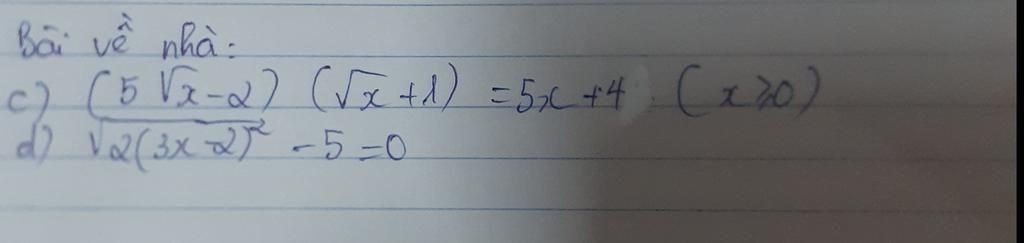 Bài về nhà:
c) (5√x-2) (√x+1) =5x+4 (x≥0)
d) √2(3x-2)² -5=0